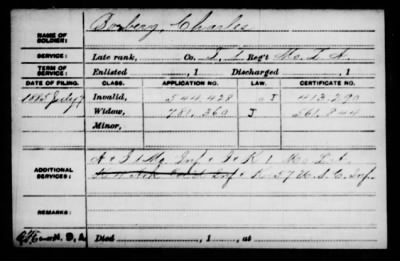 NAME OF SOLDIER: Borberg, Charles
SERVICE: Late rank, Co. I, L Reg't Mo. L A.
TERM OF SERVICE: Enlisted , 1 Discharged , 1
DATE OF FILING. CLASS. APPLICATION NO. LAW. CERTIFICATE NO.
1885 July 7 Invalid, 544,428 J 413,290
Widow, 781,360 J 561,844
Minor,
ADDITIONAL SERVICES: A + I 1 Mo Inf + I + K 1 Mo L A
Inf + K 57 U.S.C. Inf.
REMARKS:
Died , 1 , at